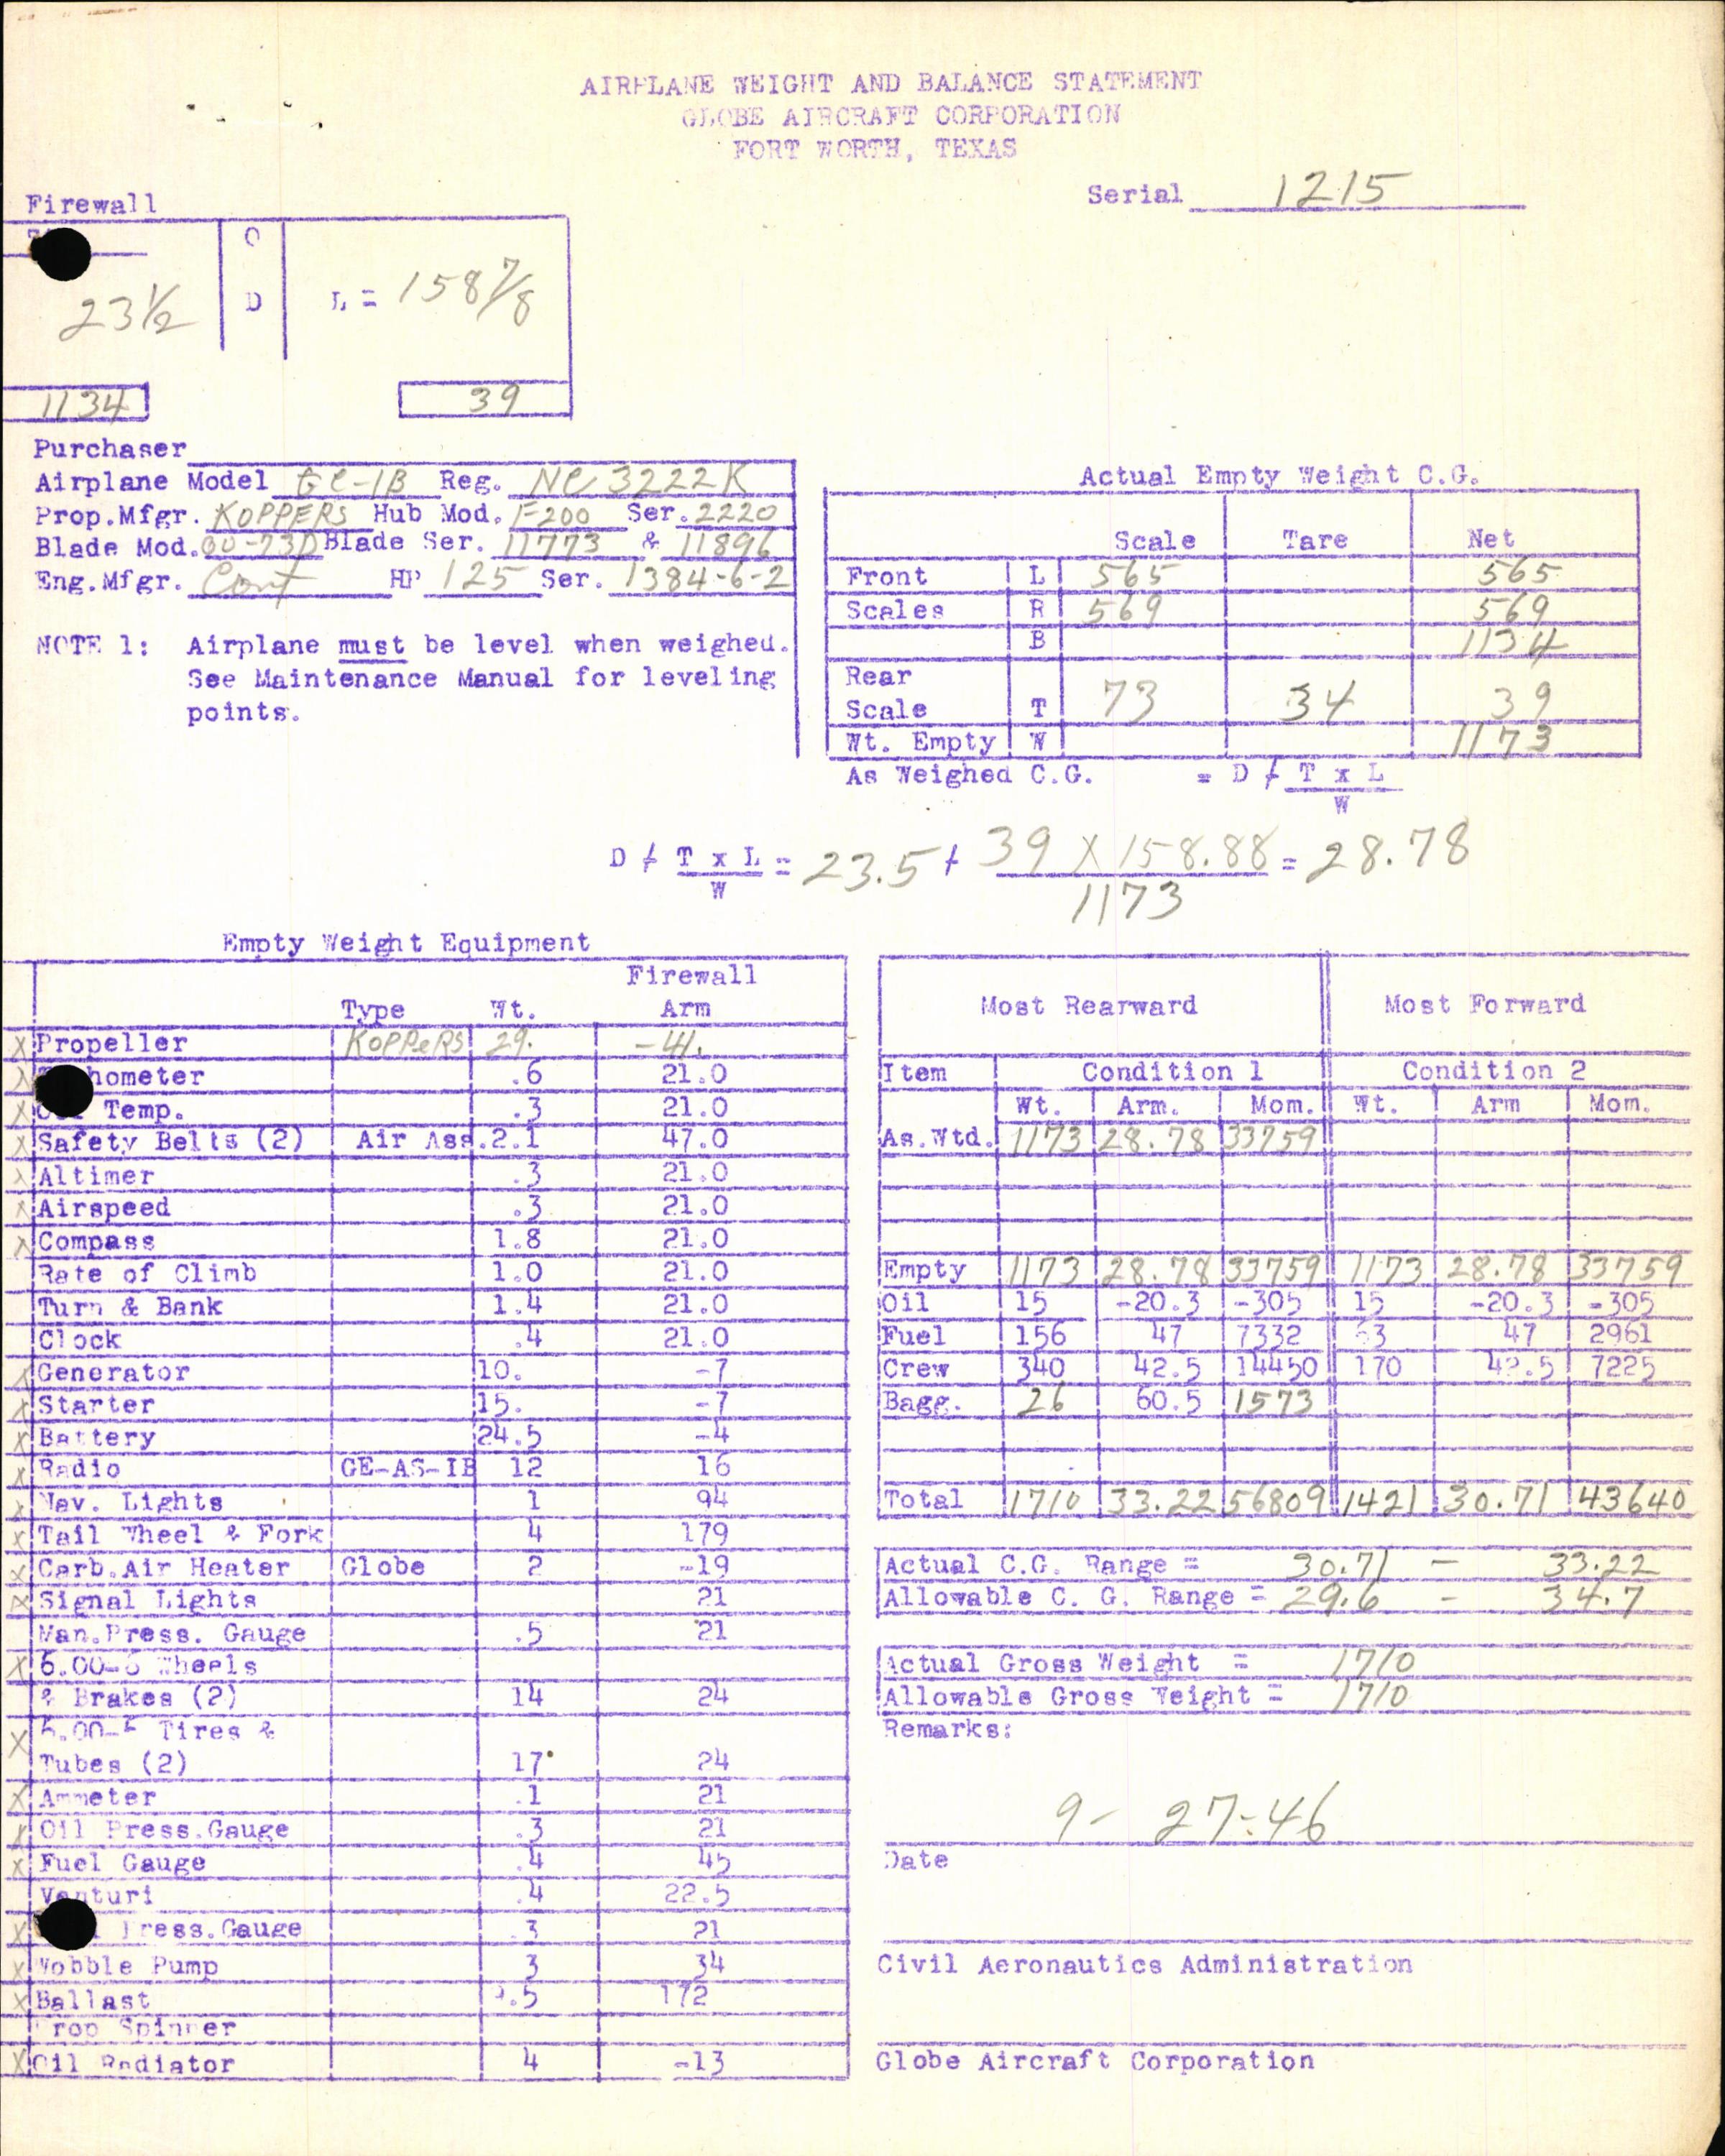 AIRPLANE WEIGHT AND BALANCE STATEMENT
GLOBE AIRCRAFT CORPORATION
FORT WORTH, TEXAS
Serial 1215
Firewall
O
D
23 1/2
L = 158 7/8
1134
39
Purchaser
Airplane Model GC-1B Reg. NC 3222K
Prop.Mfgr. KOPPERS Hub Mod. F200 Ser. 2220
Blade Mod. 00-73D Blade Ser. 11773 & 11896
Eng.Mfgr. Cont HP 125 Ser. 1384-6-2
NOTE 1: Airplane must be level when weighed.
See Maintenance Manual for leveling
points.
Actual Empty Weight C.G.
Scale Tare Net
Front L 565 565
Scales R 569 569
B 1134
Rear
Scale T 73 34 39
Wt. Empty W 1173
As Weighed C.G. = D + T x L
W
D + T x L = 23.5 + 39 X 158.88 = 28.78
W 1173
Empty Weight Equipment
Firewall
Type Wt. Arm
X Propeller KOPPERS 29. -41.
X hometer .6 21.0
X Temp. .3 21.0
X Safety Belts (2) Air Ass. 2.1 47.0
X Altimer .3 21.0
X Airspeed .3 21.0
X Compass 1.8 21.0
Rate of Climb 1.0 21.0
Turn & Bank 1.4 21.0
Clock .4 21.0
X Generator 10. -7
X Starter 15. -7
X Battery 24.5 -4
X Radio GE-AS-1B 12 16
X Nav. Lights 1 94
X Tail Wheel & Fork 4 179
X Carb.Air Heater Globe 2 -19
X Signal Lights 21
Man.Press. Gauge .5 21
X 6.00-6 Wheels
& Brakes (2) 14 24
X Tires &
Tubes (2) 17 24
X Ammeter .1 21
X Oil Press.Gauge .3 21
X Fuel Gauge .4 45
Venturi .4 22.5
X ress.Gauge .3 21
X Wobble Pump 3 34
X Ballast .5 172
Prop Spinner
X Oil Radiator 4 -13
Most Rearward Most Forward
Item Condition 1 Condition 2
Wt. Arm. Mom. Wt. Arm Mom.
As.Wtd. 1173 28.78 33759
Empty 1173 28.78 33759 1173 28.78 33759
Oil 15 -20.3 -305 15 -20.3 -305
Fuel 156 47 7332 63 47 2961
Crew 340 42.5 14450 170 42.5 7225
Bagg. 26 60.5 1573
Total 1710 33.22 56809 1421 30.71 43640
Actual C.G. Range = 30.71 - 33.22
Allowable C. G. Range = 29.6 - 34.7
Actual Gross Weight = 1710
Allowable Gross Weight = 1710
Remarks:
9- 27-46
Date
Civil Aeronautics Administration
Globe Aircraft Corporation